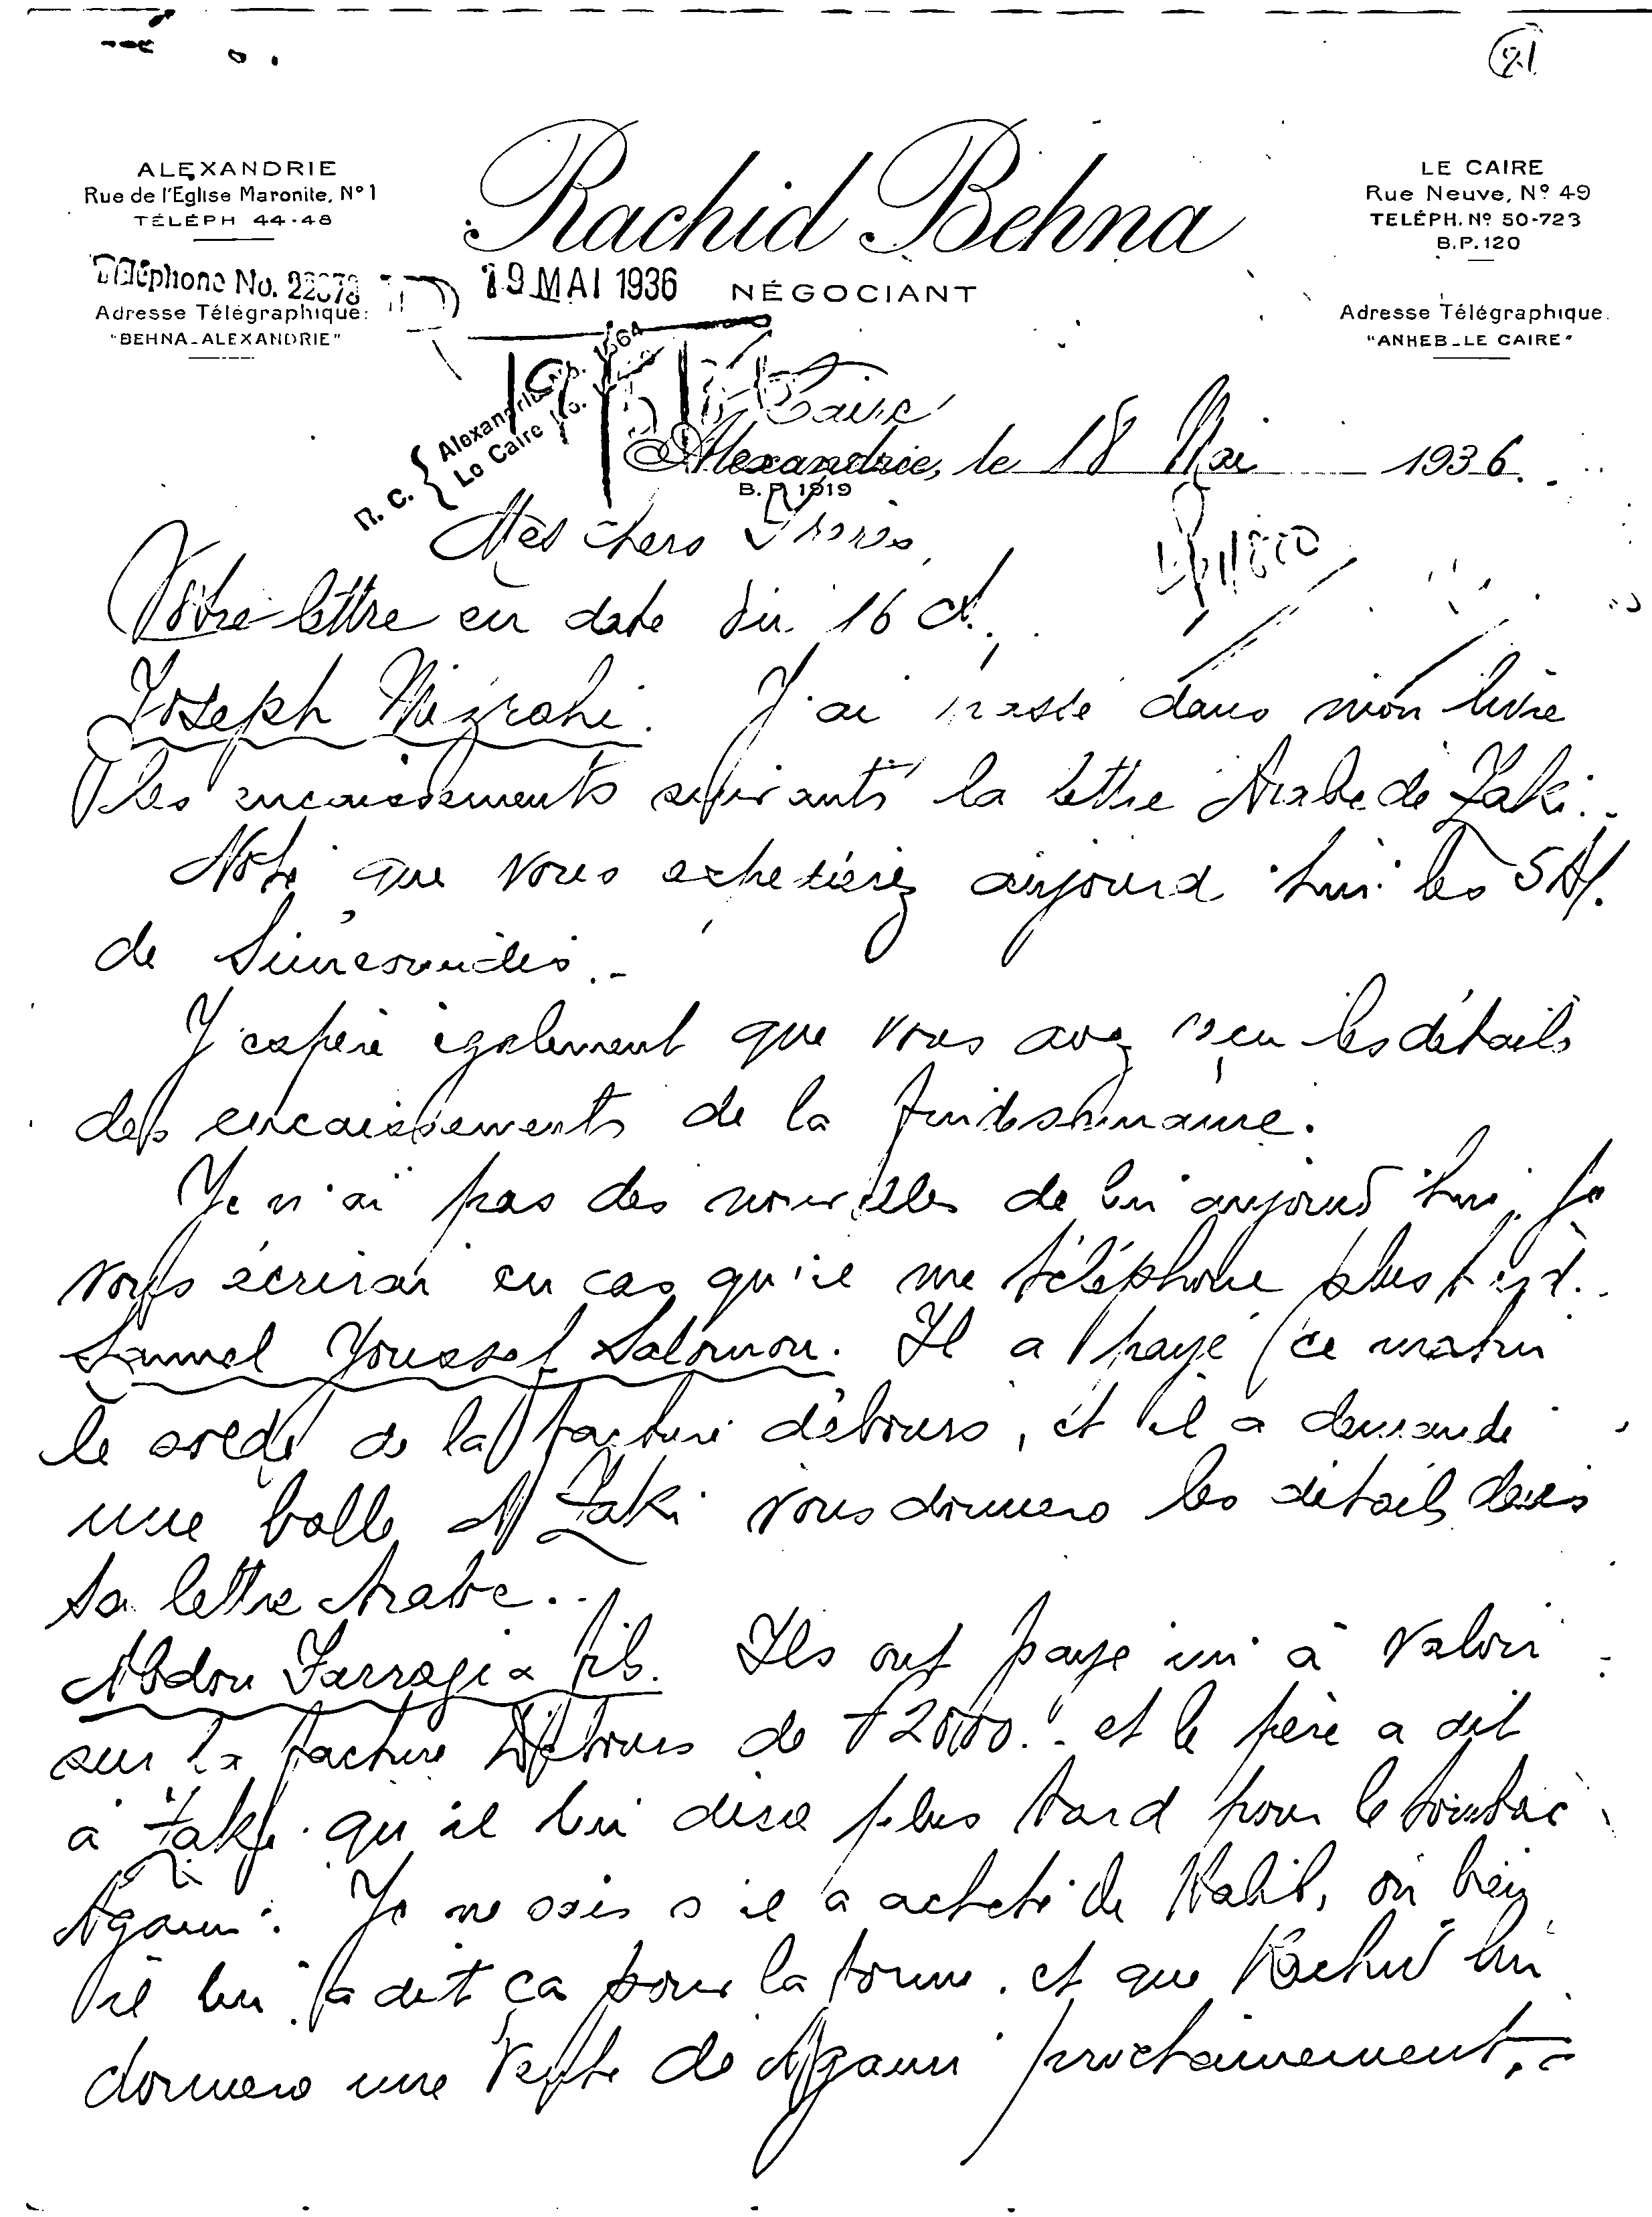 21
ALEXANDRIE
Rue de l'Eglise Maronite, Nº 1
TÉLÉPH 44-48
Téléphone No. 22678
Adresse Télégraphique:
"BEHNA-ALEXANDRIE"
Rachid Behna
NÉGOCIANT
19 MAI 1936
LE CAIRE
Rue Neuve, Nº 49
TELÉPH. Nº 50-723
B.P. 120
Adresse Télégraphique.
"ANHEB-LE CAIRE"
R. C. { Alexandrie No. 1564
Le Caire No.
Caire
Alexandrie, le 18 Mai 1936.
B. P. 1919
Mes chers Frères,
Votre lettre en date du 16 ct.,
Joseph Mizrahi. J'ai passé dans mon livre
les encaissements suivants la lettre Arabe de Zaki.
Noté que vous acheterez aujourd'hui les
de
J'espère également que vous avez reçu les détails
des encaissements de la
Je n'ai pas des nouvelles de lui aujourd'hui, Je
vous écrirai en cas qu'il me téléphone plus tard.
Samuel Youssef Salomon. Il a payé ce matin
le solde de la facture débours, et il a demandé
une balle et Zaki vous donnera les détails dans
sa lettre Arabe..
Abdou Farragi & fils. Ils ont payé un à valoir
sur la facture Débours de et le père a dit
à Zaki qu'il lui dira plus tard pour le tombac
Agami. Je ne sais s'il a acheté de Habib, ou bien
il lui a dit ça pour la forme. et que Rachid lui
donnera une vente de Agami prochainement.-